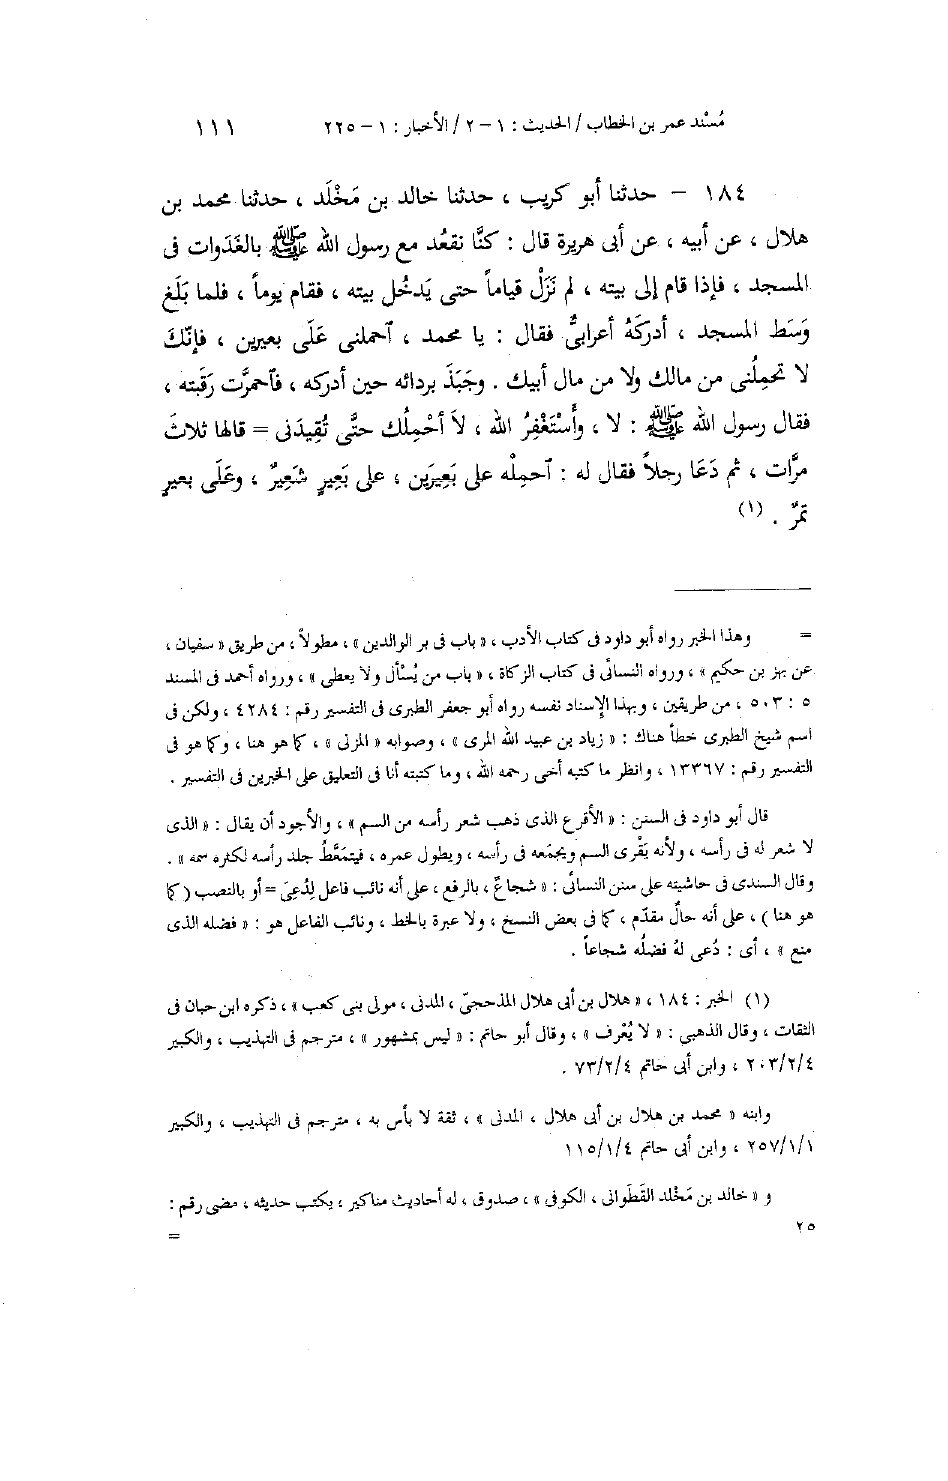 مُسْند عمر بن الخطاب / الحديث : ١ – ٢ / الأخبار : ١ – ٢٢٥ ١١١
١٨٤ – حدثنا أبو كريب ، حدثنا خالد بن مَخْلَد ، حدثنا محمد بن
هلال ، عن أبيه ، عن أبى هريرة قال : كنَّا نقعُد مع رسول الله ﷺ بالغَدَوات فى
المسجد ، فإذا قام إلى بيته ، لم نَزَلْ قياماً حتى يَدخُل بيته ، فقام يوماً ، فلما بَلَغ
وَسَط المسجد ، أدركَهُ أعرابىٌّ فقال : يا محمد ، آحملنى عَلَى بعيرين ، فإنّكَ
لا تحمِلُنى من مالك ولا من مال أبيك . وجَبَذَ بردائه حين أدركه ، فآحمرَّت رَقَبته ،
فقال رسول الله ﷺ : لا ، وأَسْتَغْفِرُ الله ، لاَ أحْمِلُك حتَّى تُقِيدَنى = قالها ثلاثَ
مرَّات ، ثم دَعَا رجلاً فقال له : آحمِلْه على بَعِيرَين ، على بَعِيرٍ شَعِيرٌ ، وعَلَى بعيرٍ
تمرٌ . (١)
= وهذا الخبر رواه أبو داود فى كتاب الأدب ، « باب فى بر الوالدين » ، مطولاً ، من طريق « سفيان ،
عن بهز بن حكيم » ، ورواه النسائى فى كتاب الزكاة ، « باب من يُسْأل ولا يعطى » ، ورواه أحمد فى المسند
٥ : ٥٠٣ ، من طريقين ، وبهذا الإسناد نفسه رواه أبو جعفر الطبرى فى التفسير رقم : ٤٢٨٤ ، ولكن فى
اسم شيخ الطبرى خطأ هناك : « زياد بن عبيد الله المرى » ، وصوابه « المزنى » ، كما هو هنا ، وكما هو فى
التفسير رقم : ١٣٣٦٧ ، وانظر ما كتبه أخى رحمه الله ، وما كتبته أنا فى التعليق على الخبرين فى التفسير .
قال أبو داود فى السنن : « الأقرع الذى ذهب شعر رأسه من السم » ، والأجود أن يقال : « الذى
لا شعر له فى رأسه ، ولأنه يَقْرى السم ويجمَعه فى رأسه ، ويطول عمره ، فيتمَعَّطُ جلد رأسه لكثره سمه » .
وقال السندى فى حاشيته على سنن النسائى : « شجاعٌ ، بالرفع ، على أنه نائب فاعل لِدُعِىَ = أو بالنصب ( كما
هو هنا ) ، على أنه حالٌ مقدّم ، كما فى بعض النسخ ، ولا عبرة بالخط ، ونائب الفاعل هو : « فضله الذى
منع » ، أى : دُعى لهُ فضلُه شجاعاً .
(١) الخبر : ١٨٤ ، « هلال بن أبى هلال المذحجىّ ، المدنى ، مولى بنى كعب » ، ذكره ابن حبان فى
الثقات ، وقال الذهبي : « لا يُعْرف » ، وقال أبو حاتم : « ليس بمشهور » ، مترجم فى التهذيب ، والكبير
٢٠٣/٢/٤ ، وابن أبى حاتم ٧٣/٢/٤ .
وابنه « محمد بن هلال بن أبى هلال ، المدنى » ، ثقة لا بأس به ، مترجم فى التهذيب ، والكبير
٢٥٧/١/١ ، وابن أبى حاتم ١١٥/١/٤
و « خالد بن مَخْلد القَطَوانى ، الكوفى » ، صدوق ، له أحاديث مناكير ، يكتب حديثه ، مضى رقم :
٢٥
=